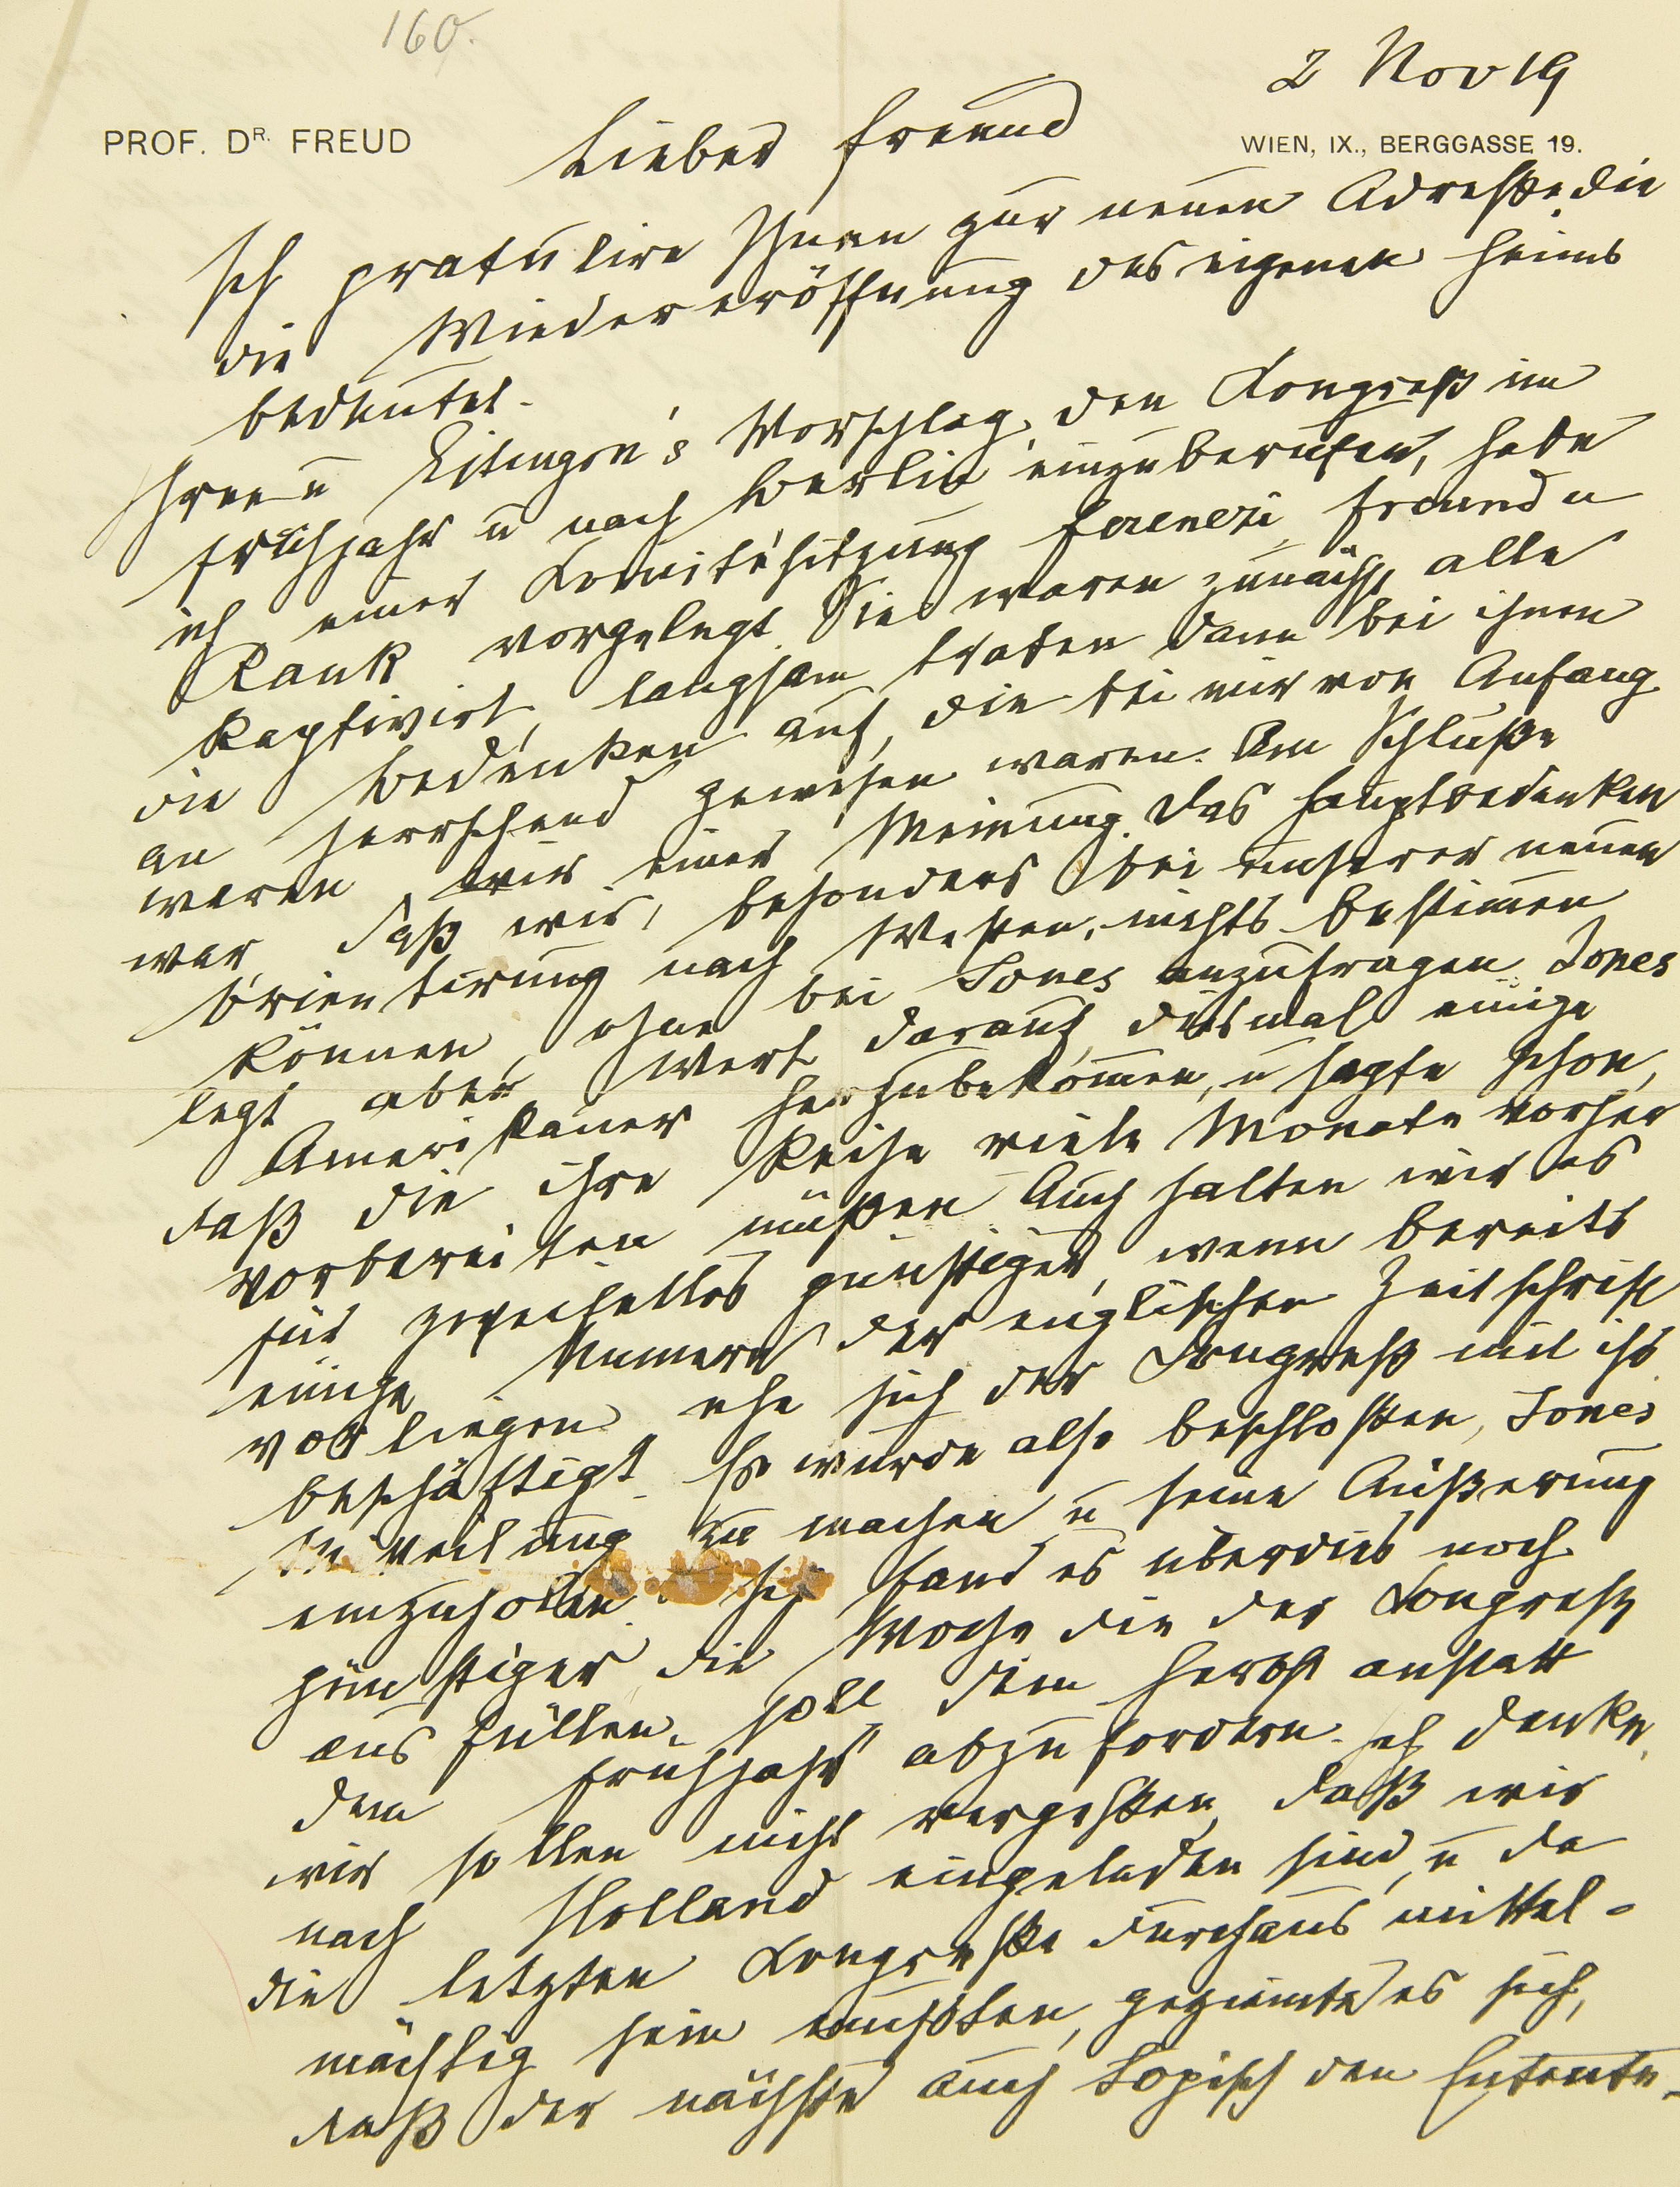 160.
2 Nov 19
PROF. DR. FREUD
WIEN, IX., BERGGASSE 19.
Lieber Freund
Ich gratulire Ihnen zur neuen Adresse, die
die Wiedereröffnung des eigenen Heims
bedeutet.
Ihren u Eitingon's Vorschlag, den Kongreß im
Frühjahr u nach Berlin einzuberufen, habe
ich einer Komitésitzung Ferenczi, Freund u
Rank vorgelegt. Sie waren zunächst alle
kaptivirt, langsam traten dann bei ihnen
die Bedenken auf, die bei mir von Anfang
an herrschend gewesen waren. Am Schluße
waren wir einer Meinung. Das Hauptbedenken
war, daß wir, besonders bei unserer neuen
Orientirung nach Westen, nichts bestimmen
können, ohne bei Jones anzufragen. Jones
legt aber Wert darauf, diesmal einige
Amerikaner herzubekommen, u sagte schon,
daß die ihre Reise viele Monate vorher
vorbereiten müßen. Auch halten wir es
für günstiger, wenn bereits
einige Numern der englischen Zeitschrift
vorliegen ehe sich der Kongreß mit ihr
beschäftigt. Es wurde also beschlossen, Jones
Mitteilung zu machen u seine Äußerung
einzuholen. Ich fand es überdies noch
günstiger die Woche die der Kongreß
ausfüllen soll dem Herbst anstatt
dem Frühjahr abzufordern. Ich denke,
wir sollen nicht vergessen, daß wir
nach Holland eingeladen sind, u da
die letzten Kongresse durchaus mittel-
mächtig sein mußten, geziemte es sich,
daß der nächste auch logisch den Entente-